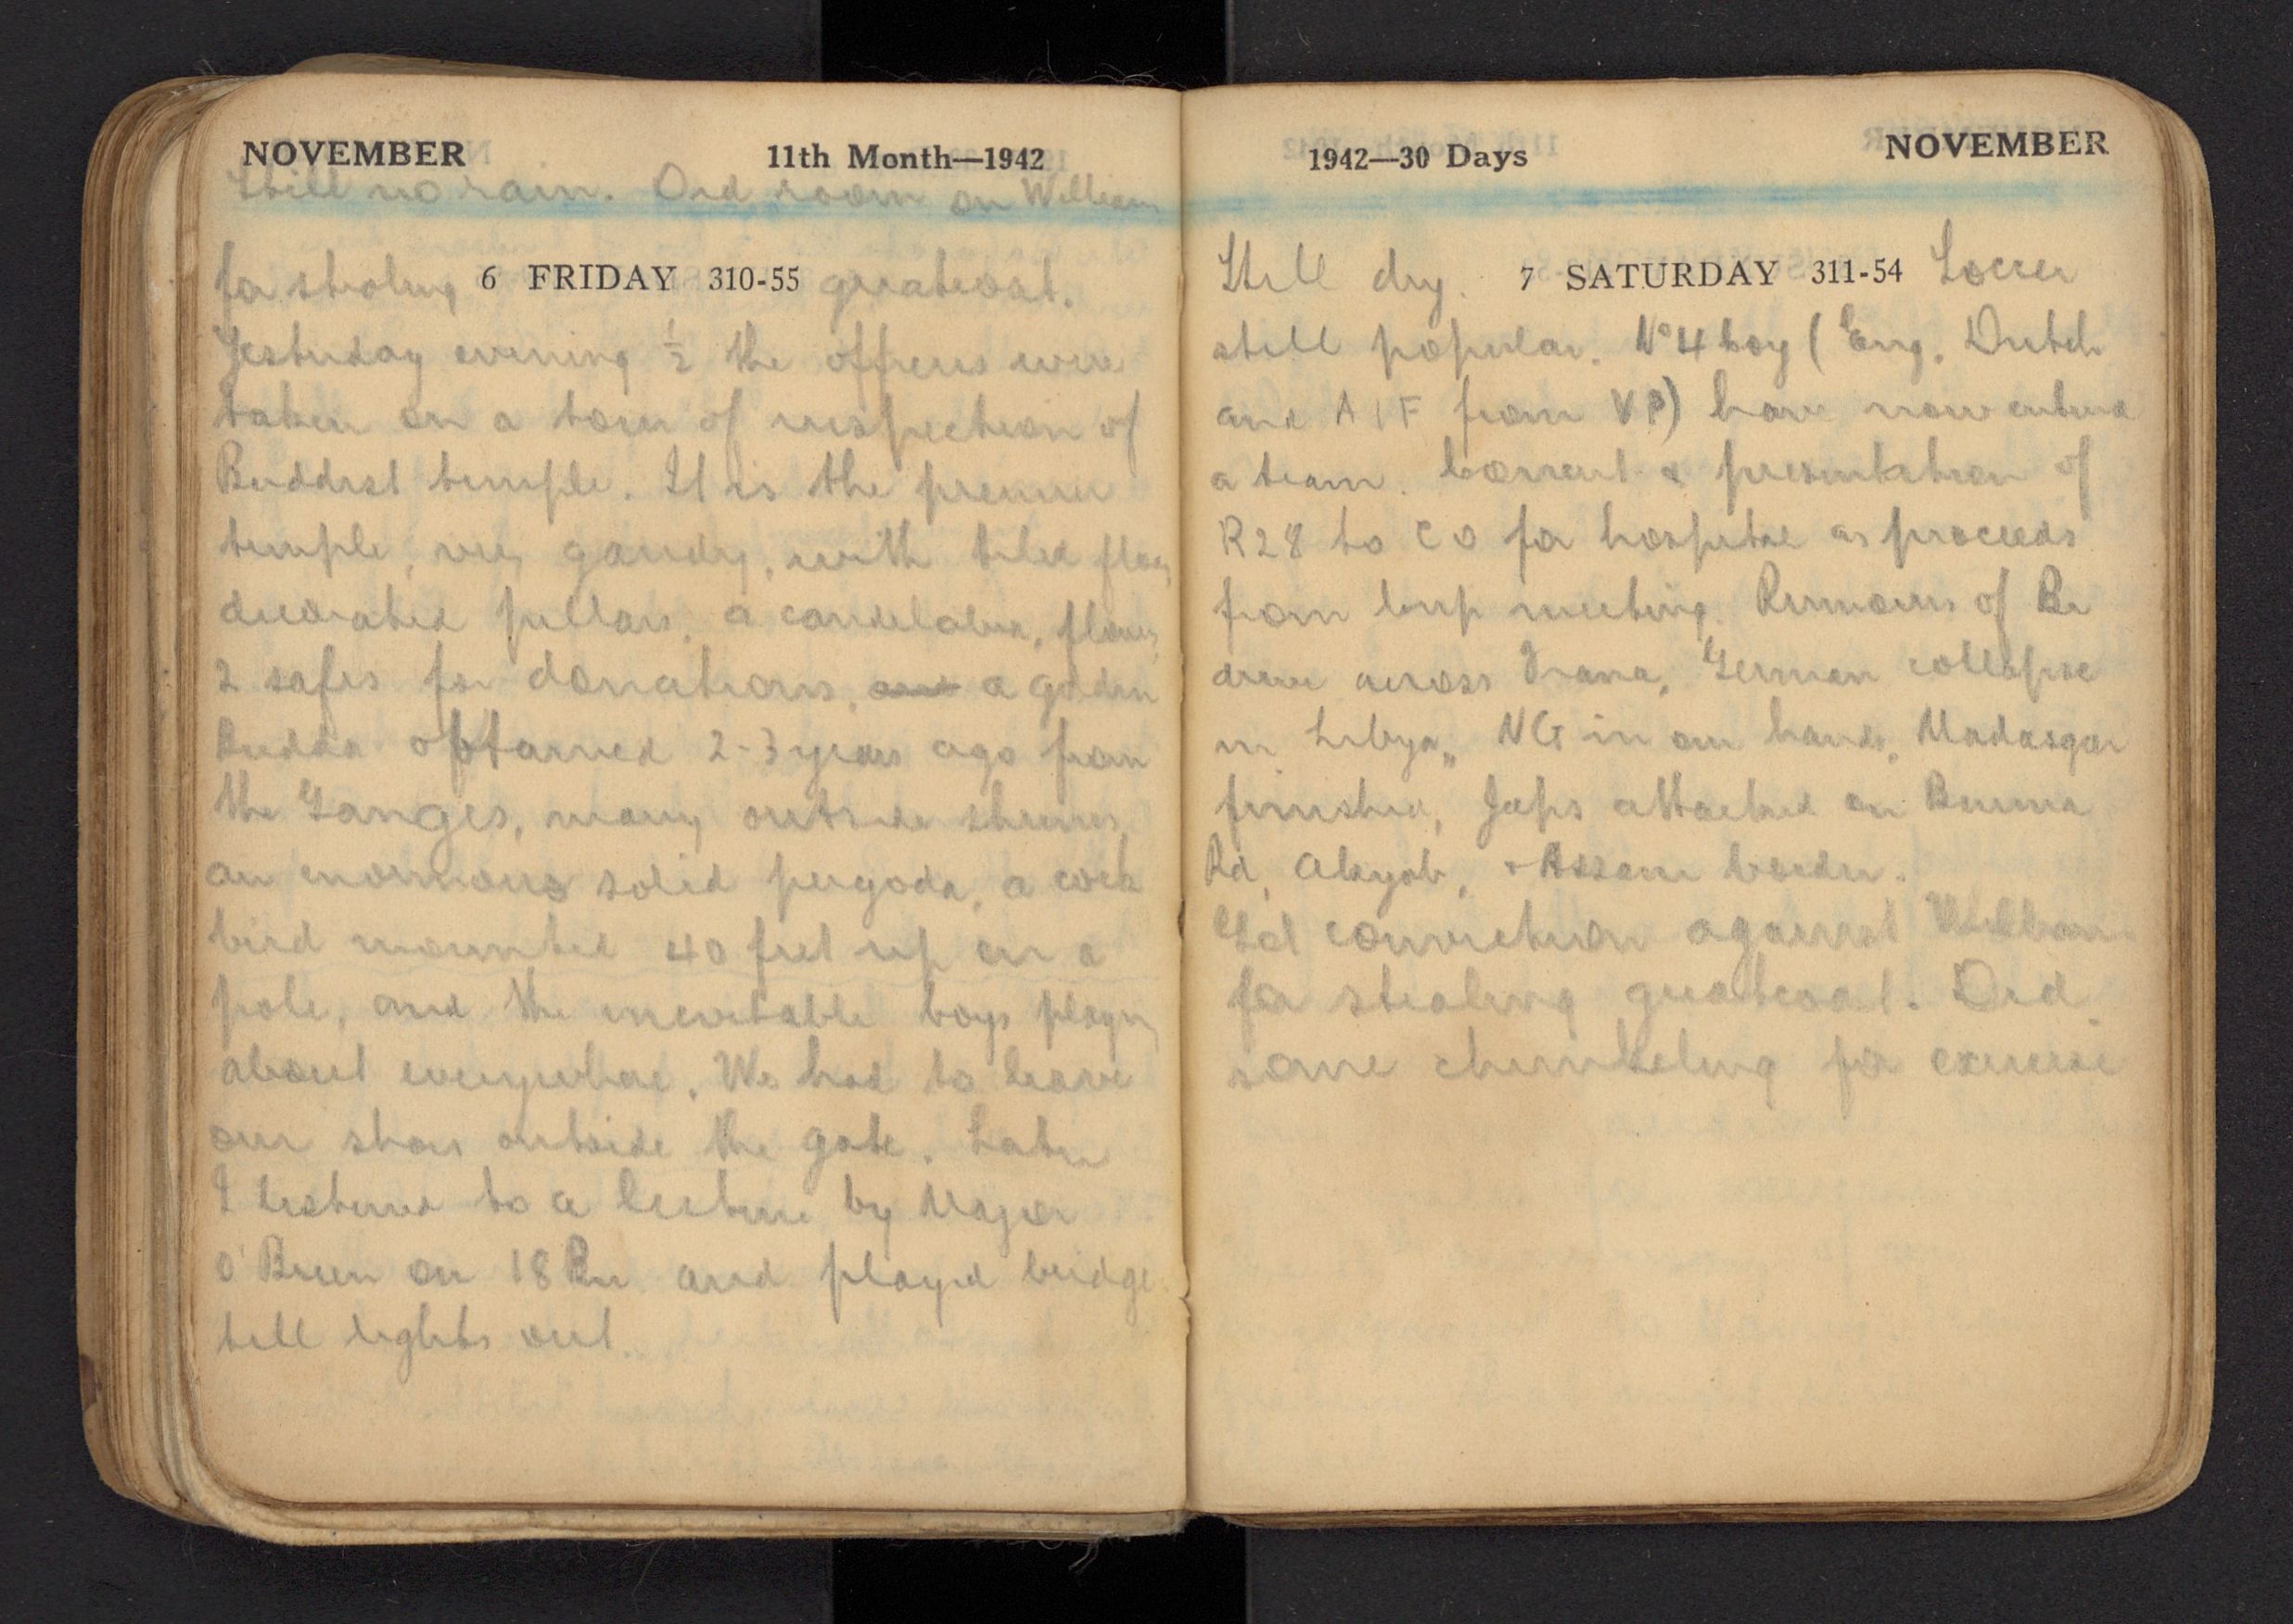 NOVEMBER 11th Month—1942
Still no rain. Ord room on William
for stealing 6 FRIDAY 310-55 greatcoat.
Yesterday evening ½ the officers were
taken on a tour of inspection of
Buddist temple. It is the premier
temple, very gaudy, with tiled floor,
decorated pillars, a candelabra, flowers,
2 safes for donations, and a golden
Budda obtained 2-3 years ago from
the Ganges, many outside shrines,
an enormous solid pergoda, a cock
bird mounted 40 feet up on a
pole, and the inevitable boys playing
about everywhere. We had to leave
our shoes outside the gate. Later
I listened to a lecture by Major
O'Brien on 18 Bn and played bridge
till lights out.
1942—30 Days NOVEMBER
Still dry. 7 SATURDAY 311-54 Soccer
still popular. No 4 boy (Eng. Dutch
and AIF from VP) have now entered
a team. Concert & presentation of
R28 to CO for hospital as proceeds
from cup meeting. Rumours of Br
drive across Irana, German collapse
in Libya, NG in our hands, Madasgar
finished, Japs attacked on Burma
Rd, Akyab, + Assam border.
Got conviction against William
for stealing greatcoat. Did
some chunkeling for exercise